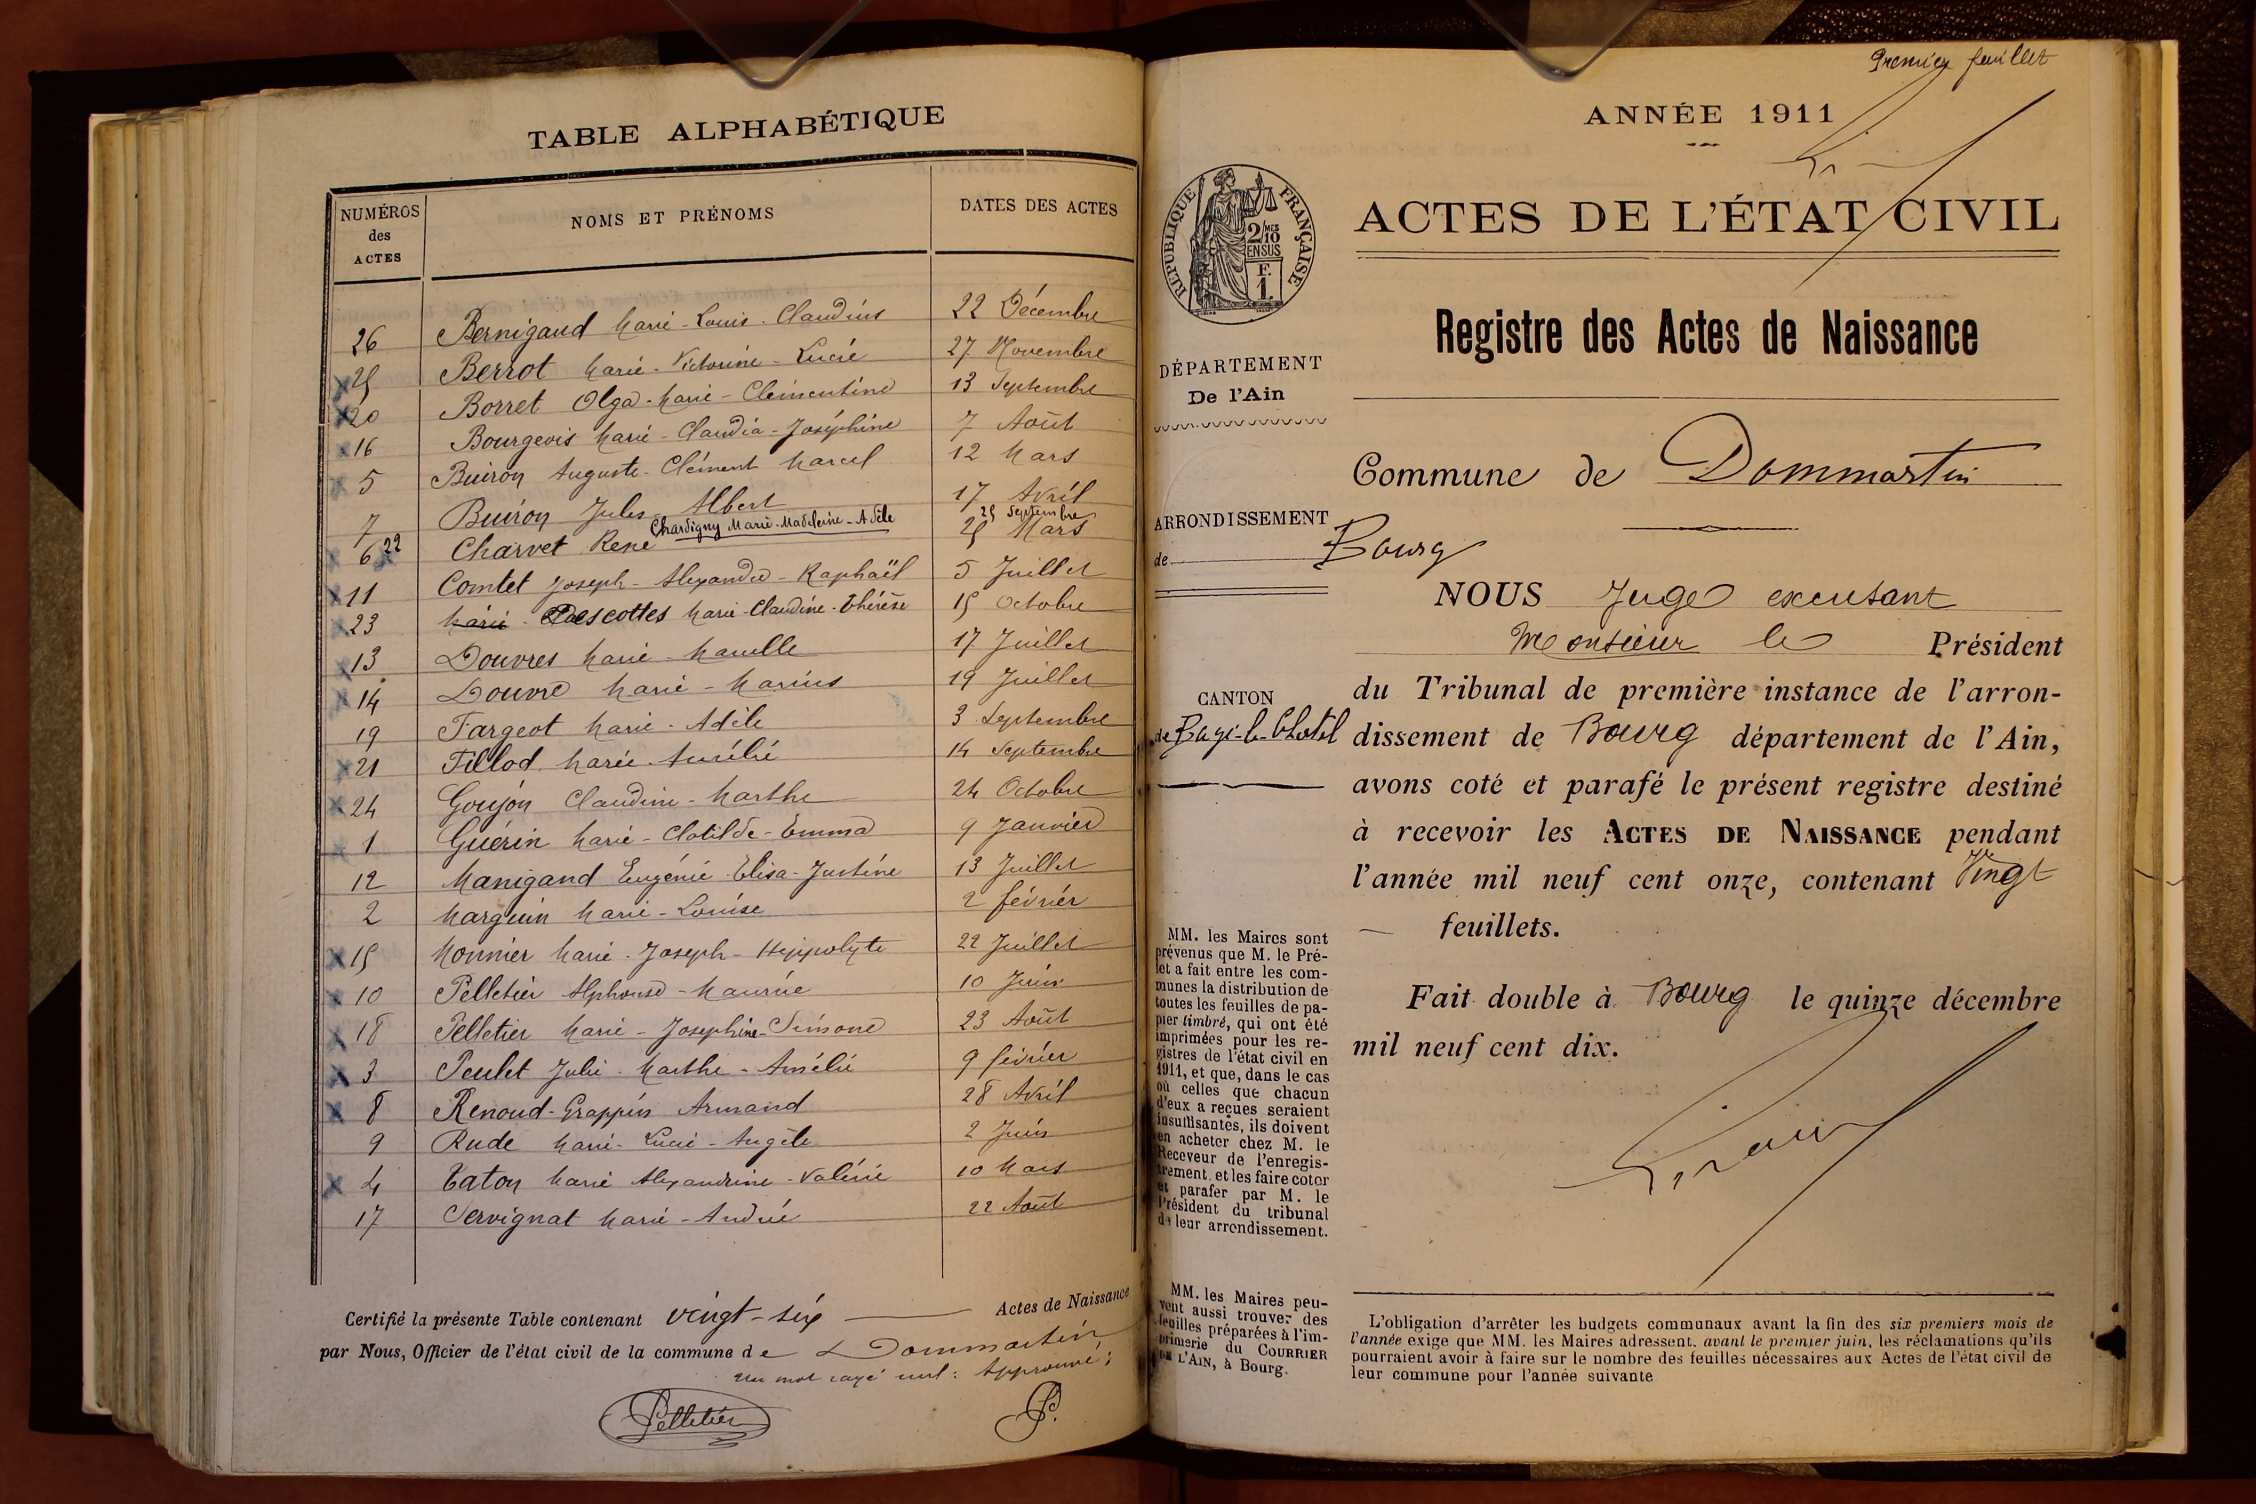 TABLE ALPHABÉTIQUE
NUMÉROS des ACTES NOMS ET PRÉNOMS DATES DES ACTES
26 Bernigaud Marie-Louis-Claudius 22 Décembre
25 Berrot Marie-Victorine-Lucie 27 Novembre
20 Borret Olga-Marie-Clémentine 13 Septembre
16 Bourgeois Marie-Claudia-Joséphine 7 Août
5 Buiron Auguste-Clément Marcel 12 Mars
7 Buiron Jules-Albert 17 Avril
22 Chardigny Marie-Madeleine-Adèle 25 Septembre
6 Charvet René 25 Mars
11 Comtet Joseph-Alexandre-Raphaël 5 Juillet
23 Marie Descottes Marie-Claudine-Thérèse 15 Octobre
13 Douvres Marie-Marcelle 17 Juillet
14 Douvre Marie-Marius 19 Juillet
19 Fargeot Marie-Adèle 3 Septembre
21 Fillod Marie-Aurélie 14 Septembre
24 Goujon Claudine-Marthe 24 Octobre
1 Guérin Marie-Clotilde-Emma 9 Janvier
12 Manigand Eugénie-Elisa-Justine 13 Juillet
2 Marguin Marie-Louise 2 février
15 Monnier Marie-Joseph-Hippolyte 22 Juillet
10 Pelletier Alphonse-Maurice 10 Juin
18 Pelletier Marie-Joséphine-Simone 23 Août
3 Peulet Julie-Marthe-Amélie 9 février
8 Renoud-Grappin Armand 28 Avril
9 Rude Marie-Lucie-Angèle 2 Juin
4 Taton Marie Alexandrine-Valérie 10 Mars
17 Servignat Marie-Andrée 22 Août
Certifié la présente Table contenant vingt-six Actes de Naissance
par Nous, Officier de l'état civil de la commune de Dommartin
un mot rayé nul : Approuvé :
Pelletier P.
Premier feuillet
ANNÉE 1911
ACTES DE L'ÉTAT CIVIL
Registre des Actes de Naissance
RÉPUBLIQUE FRANÇAISE
2/10 MES
EN SUS
F.
1.
DÉPARTEMENT
De l'Ain
ARRONDISSEMENT
de Bourg
CANTON
de Bagé-le-Chatel
MM. les Maires sont
prévenus que M. le Pré-
fet a fait entre les com-
munes la distribution de
toutes les feuilles de pa-
pier timbré, qui ont été
imprimées pour les re-
gistres de l'état civil en
1911, et que, dans le cas
où celles que chacun
d'eux a reçues seraient
insuffisantes, ils doivent
en acheter chez M. le
Receveur de l'enregis-
trement et les faire coter
et parafer par M. le
Président du tribunal
de leur arrondissement.
MM. les Maires peu-
vent aussi trouver des
feuilles préparées à l'im-
primerie du COURRIER
DE L'AIN, à Bourg.
Commune de Dommartin
NOUS Juge excusant
Monsieur le Président
du Tribunal de première instance de l'arron-
dissement de Bourg département de l'Ain,
avons coté et parafé le présent registre destiné
à recevoir les ACTES DE NAISSANCE pendant
l'année mil neuf cent onze, contenant Vingt
feuillets.
Fait double à Bourg le quinze décembre
mil neuf cent dix.
L'obligation d'arrêter les budgets communaux avant la fin des six premiers mois de
l'année exige que MM. les Maires adressent, avant le premier juin, les réclamations qu'ils
pourraient avoir à faire sur le nombre des feuilles nécessaires aux Actes de l'état civil de
leur commune pour l'année suivante